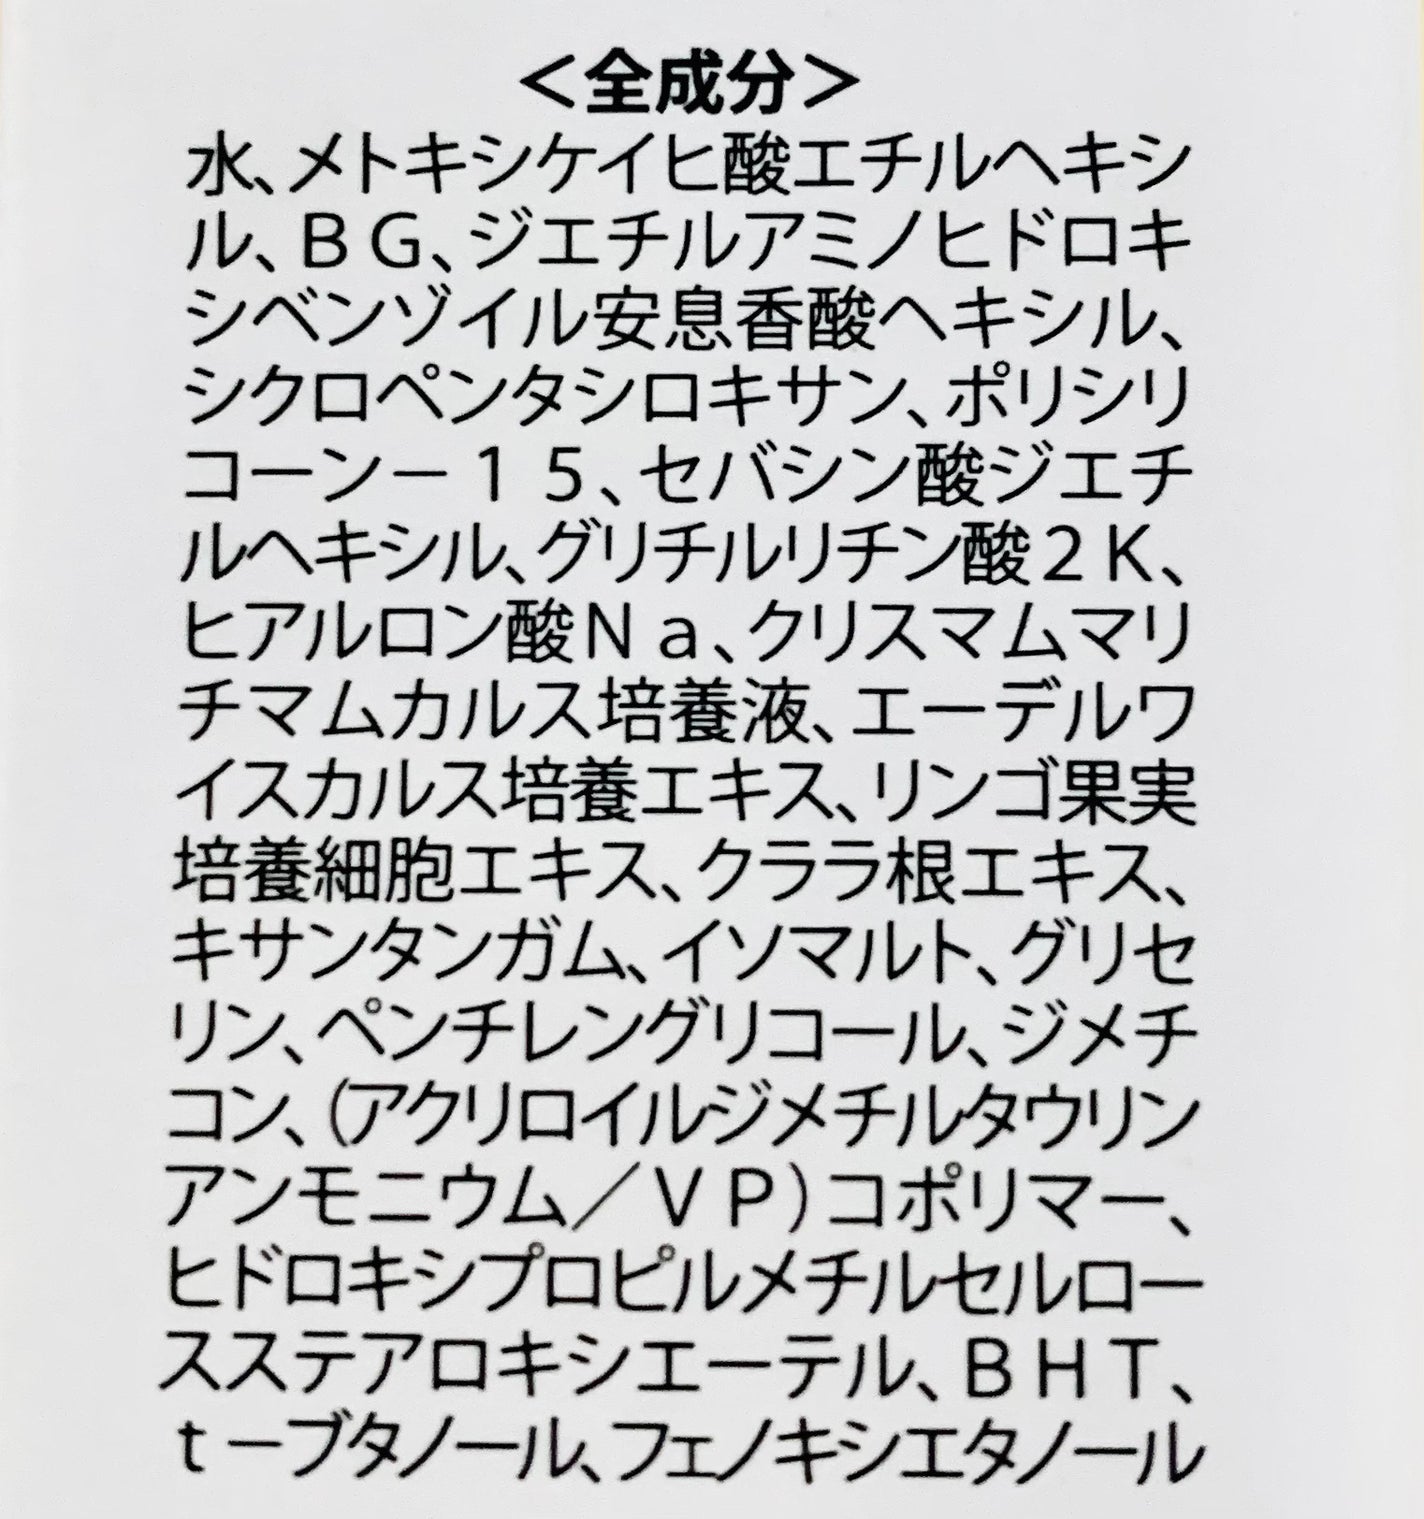 ＜全成分＞
水、メトキシケイヒ酸エチルヘキシ
ル、ＢＧ、ジエチルアミノヒドロキ
シベンゾイル安息香酸ヘキシル、
シクロペンタシロキサン、ポリシリ
コーン－１５、セバシン酸ジエチ
ルヘキシル、グリチルリチン酸２Ｋ、
ヒアルロン酸Ｎａ、クリスマムマリ
チマムカルス培養液、エーデルワ
イスカルス培養エキス、リンゴ果実
培養細胞エキス、クララ根エキス、
キサンタンガム、イソマルト、グリセ
リン、ペンチレングリコール、ジメチ
コン、（アクリロイルジメチルタウリン
アンモニウム／ＶＰ）コポリマー、
ヒドロキシプロピルメチルセルロー
スステアロキシエーテル、ＢＨＴ、
ｔ－ブタノール、フェノキシエタノール